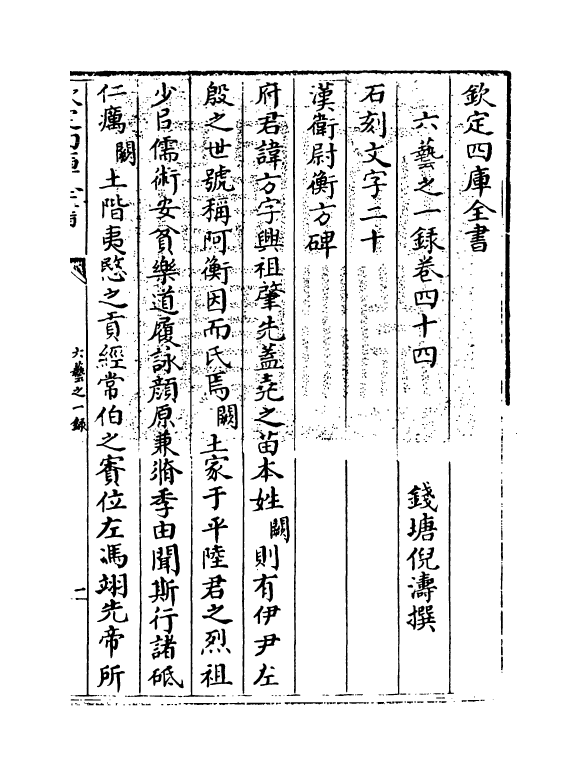 欽定四庫全書
六藝之一錄卷四十四
錢塘倪濤撰
石刻文字二十
漢衛尉衡方碑
府君諱方字興祖肇先蓋堯之苗本姓闕則有伊尹左
殷之世號稱阿衡因而氏焉闕土家于平陸君之烈祖
少㠯儒術安貧樂道履詠顔原兼脩季由聞斯行諸砥
仁癘闕土階夷愍之貢經常伯之賽位左馮翊先帝所
六藝之一錄